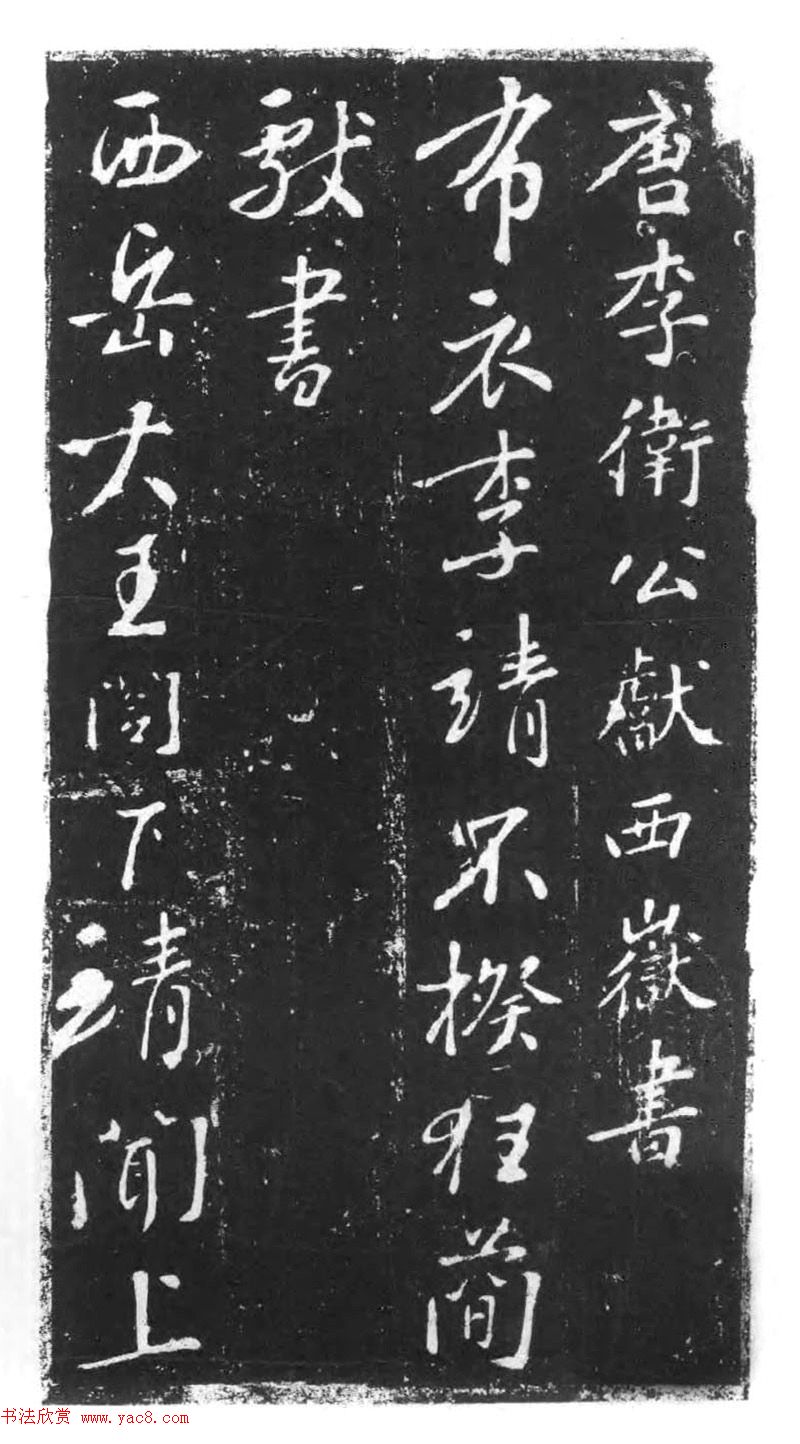 唐李衛公獻西嶽書
布衣李靖不揆狂簡
献書
西岳大王閤下靖聞上
书法欣赏 www.yac8.com